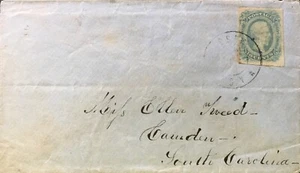 Miss Ellen Tweed -
Camden -
South Carolina -